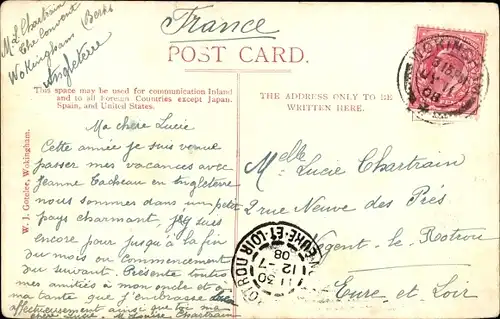 France
Mlle Chartrain
The Convent
Wokingham (Berks
Angleterre
POST CARD.
This space may be used for communication Inland
and to all Foreign Countries except Japan,
Spain, and United States.
THE ADDRESS ONLY TO BE
WRITTEN HERE.
W. J. Gotelee, Wokingham.
Ma chère Lucie
Cette année je suis venue
passer mes vacances avec
Jeanne Tacheau en Angleterre
nous sommes dans un petit
pays charmant j'y suis
encore pour jusqu'à la fin
du mois ou commencement
du suivant. Présente toutes
mes amitiés à mon oncle et a
ma tante que j'embrasse
affectueusement ainsi que toi ma
chère Lucie. M Louise Chartrain
Melle Lucie Chartrain
2 rue Neuve des Prés
Nogent-le-Rotrou
Eure et Loir
WOKING
08
EURE-ET-LOIR
11 30
12 -7
08